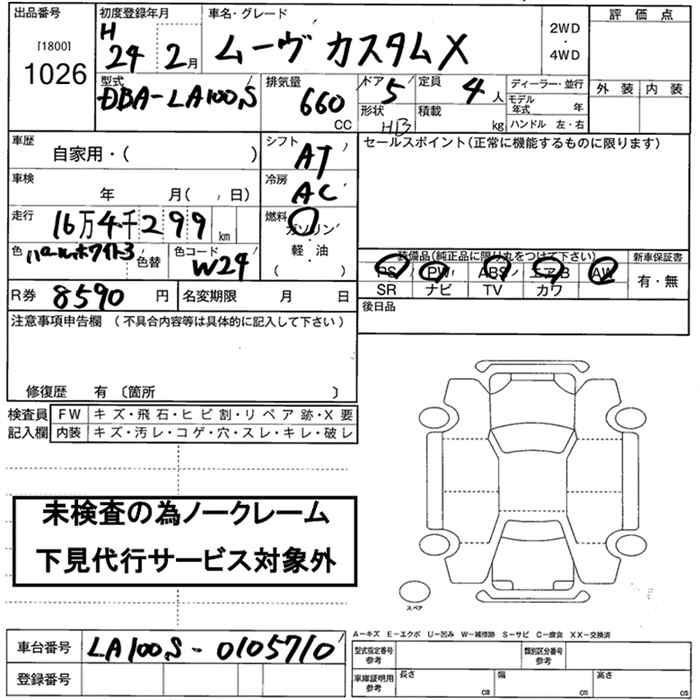 出品番号 初度登録年月 車名・グレード 2WD ・ 4WD 評価点
[1800] 1026 H 24 年 2月 ムーヴ カスタムX
型式 DBA-LA100S 排気量 660 CC ドア 5 定員 4人 ディーラー・並行 外装 内装
形状 HB 積載 kg モデル年式 年
ハンドル 左・右
車歴 自家用・( ) シフト AT セールスポイント(正常に機能するものに限ります)
車検 年 月( 日) 冷房 AC
走行 16万4千299km 燃料 ガソリン・軽油 ( )
色 パールホワイト3 色替 色コード W24 装備品(純正品に限り丸をつけて下さい) 新車保証書
PS PW ABS エアB AW 有・無
SR ナビ TV カワ
R券 8590円 名変期限 月 日 後日品
注意事項申告欄 (不具合内容等は具体的に記入して下さい)
修復歴 有 〔箇所 〕
検査員 FW キズ・飛石・ヒビ割・リペア跡・X要
記入欄 内装 キズ・汚レ・コゲ・穴・スレ・キレ・破レ
未検査の為ノークレーム
下見代行サービス対象外
スペア
A-キズ E-エクボ U-凹み W-補修跡 S-サビ C-腐食 XX-交換済
車台番号 LA100S-0105710 型式指定番号 参考 類別区分番号 参考
登録番号 車庫証明用 参考 長さ cm 幅 cm 高さ cm